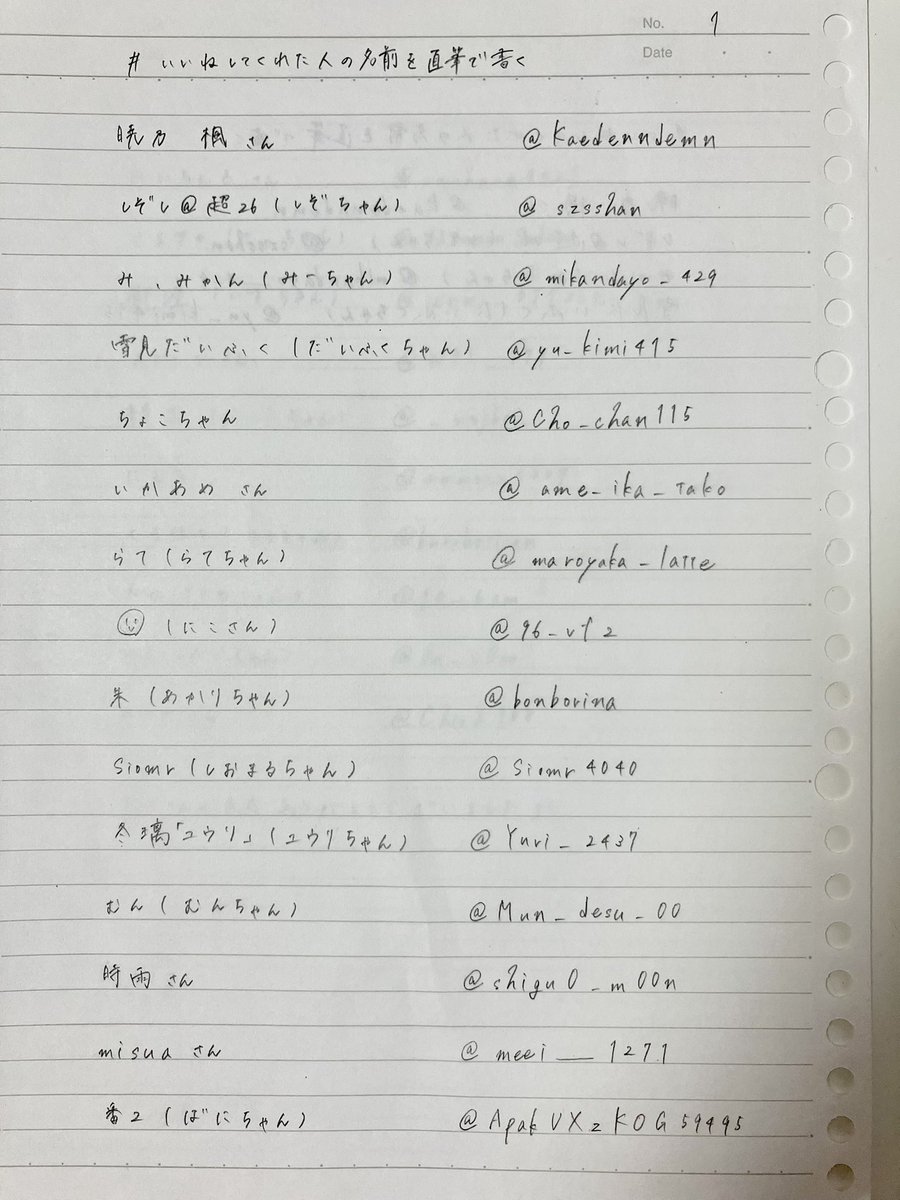 No. 1
Date
#いいねしてくれた人の名前を直筆で書く
暁乃 楓さん @Kaedenndemn
しぞし@超26(しぞちゃん) @szsshan
み、みかん(みーちゃん) @mikandayo_429
雪見だいふく(だいふくちゃん) @yu_kimi415
ちょこちゃん @Cho_chan115
いかあめ さん @ame_ika_tako
らて(らてちゃん) @maroyaka_latte
(にこさん) @96_vf2
朱(あかりちゃん) @bonborina
Siomr(しおまるちゃん) @Siomr4040
冬璃「ユウリ」(ユウリちゃん) @Yuri_2437
むん(むんちゃん) @Mun_desu_00
時雨さん @shigu0_m00n
misuaさん @meei___1271
番2(ばにちゃん) @ApakVXzKOG59495